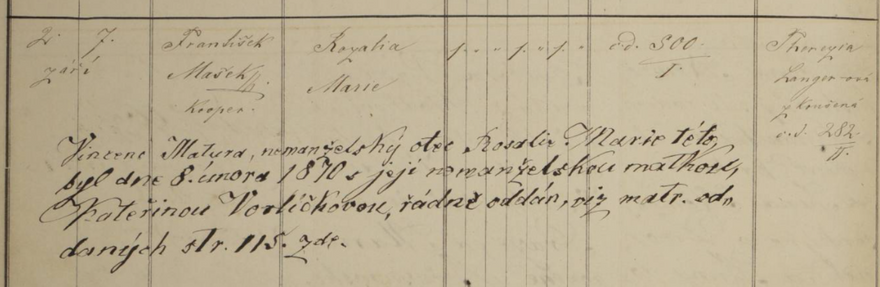 2. 7. František Rozalia / . . / . / . č.d. 300. Therezia
září Mašek Marie I. Langer-ová
Kooper. zkoušená
č.d. 282.
II.
Vincenc Matura, nemanželský otec Rosalie Marie této,
byl dne 8. února 1870 s její nemanželskou matkou,
Kateřinou Vorlíčkovou, řádně oddán, viz matr. od-
daných str. 115. zde.